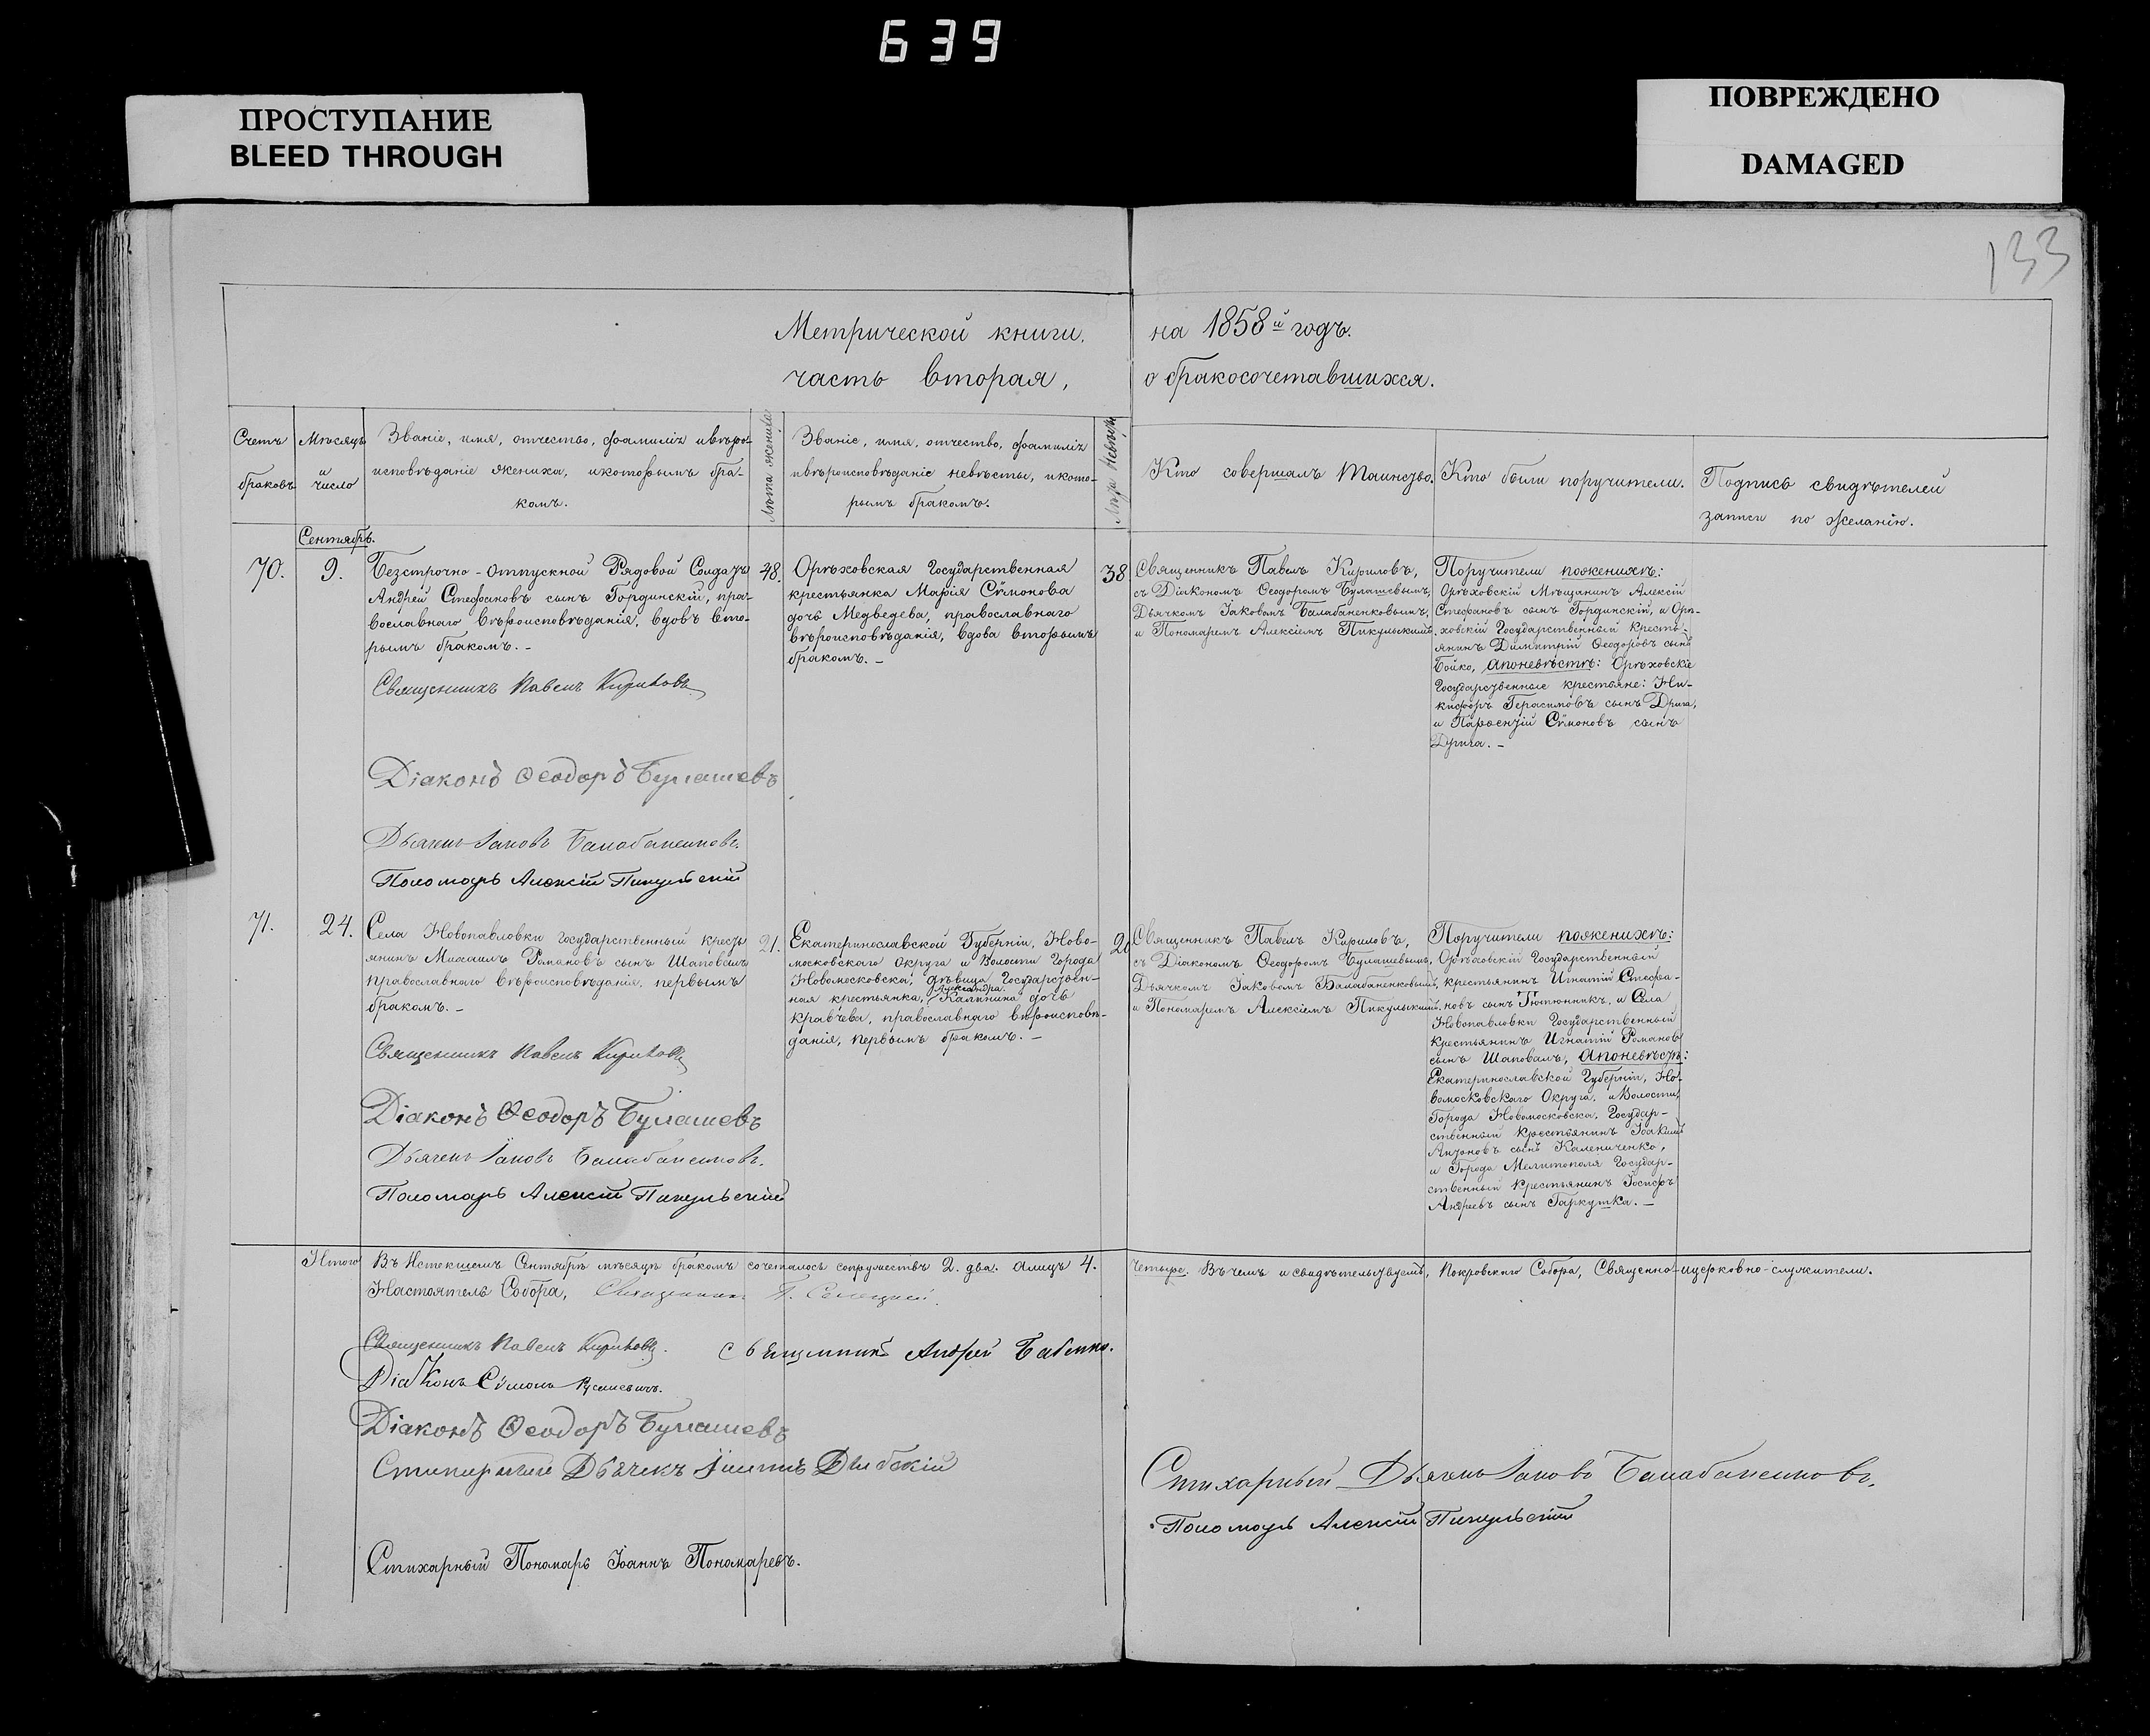 639
ПРОСТУПАНИЕ
BLEED THROUGH
ПОВРЕЖДЕНО
DAMAGED
133
Метрической книги, на 1858й годъ.
часть вторая, о бракосочетавшихся.
Счетъ браковъ
Мѣсяцъ и число
Званіе, имя, отчество, фамилія и вѣро-
исповѣданіе жениха, и которымъ бра-
комъ.
Лѣта жениха
Званіе, имя, отчество, фамилія
и вѣроисповѣданіе невѣсты, и кото-
рымъ бракомъ.
Лѣта невѣсты
Кто совершалъ Таинство.
Кто были поручители.
Подпись свидѣтелей
записи по желанію.
Сентябрь.
70.
9.
Безсрочно-отпускной Рядовой Солдатъ
Андрей Стефановъ сынъ Гординскій, пра-
вославнаго вѣроисповѣданія, вдовъ вто-
рымъ бракомъ. –
48.
Орѣховская Государственная
крестьянка Марія Сѵмонова
дочь Медведева, православнаго
вѣроисповѣданія, вдова вторымъ
бракомъ. –
38
Священникъ Павелъ Кириловъ,
съ Діакономъ Ѳеодоромъ Булашевымъ,
Дьячкомъ Іаковомъ Балабаненковымъ,
и Пономаремъ Алексіемъ Пикульскимъ.
Поручители по женихѣ:
Орѣховскій Мѣщанинъ Алексій
Стефановъ сынъ Гординскій, и Орѣ-
ховскій Государственный кресть-
янинъ Димитрій Ѳеодоровъ сынъ
Бойко, а по невѣстѣ: Орѣховскіе
Государственные крестьяне: Ни-
кифоръ Герасимовъ сынъ Дрига,
и Парѳентій Сѵмоновъ сынъ
Дрига. –
Священникъ Павелъ Кириловъ
Діаконъ Ѳеодоръ Булашевъ
Дьячекъ Іаковъ Балабаненковъ.
Пономарь Алексій Пикульскій
71.
24.
Села Новопавловки Государственный кресть
янинъ Михаилъ Романовъ сынъ Шаповалъ
православнаго вѣроисповѣданія, первымъ
бракомъ. –
21.
Екатеринославской Губерніи, Ново-
московскаго Округа и Волости Города
Новомосковска, дѣвица Государствен-
ная крестьянка, Александра Калинина дочь
Кравчева, православнаго вѣроисповѣ-
данія, первымъ бракомъ. –
20
Священникъ Павелъ Кириловъ,
съ Діакономъ Ѳеодоромъ Булашевымъ,
Дьячкомъ Іаковомъ Балабаненковымъ,
и Пономаремъ Алексіемъ Пикульскимъ.
Поручители по женихѣ:
Орѣховскій Государственный
крестьянинъ Игнатій Стефа-
новъ сынъ Тютюнникъ, и Села
Новопавловки Государственный
крестьянинъ Игнатій Романовъ
сынъ Шаповалъ, а по невѣстѣ:
Екатеринославской Губерніи, Но-
вомосковскаго Округа, и Волости,
Города Новомосковска, Государ-
ственный крестьянинъ Іоакимъ
Антоновъ сынъ Калениченко,
и Города Мелитополя Государ-
ственный крестьянинъ Іосифъ
Андреевъ сынъ Гаркушка. –
Священникъ Павелъ Кириловъ
Діаконъ Ѳеодоръ Булашевъ
Дьячекъ Іаковъ Балабаненковъ.
Пономарь Алексій Пикульскій
Итого Въ Истекшемъ Сентябрѣ мѣсяцѣ бракомъ сочеталось супружествъ 2. два. а лицъ 4. Четыре. Въ чемъ и свидѣтельствуемъ, Покровскаго Собора, Священно-и церковно-служители.
Настоятель Собора, Священникъ П.
Священникъ Павелъ Кириловъ. Священникъ Андрей Бабенко.
Діаконъ Сѵмонъ
Діаконъ Ѳеодоръ Булашевъ
Дьячекъ
Стихарный Дьячекъ Іаковъ Балабаненковъ.
Пономарь Алексій Пикульскій
Стихарный Пономарь Іоаннъ Пономаревъ.